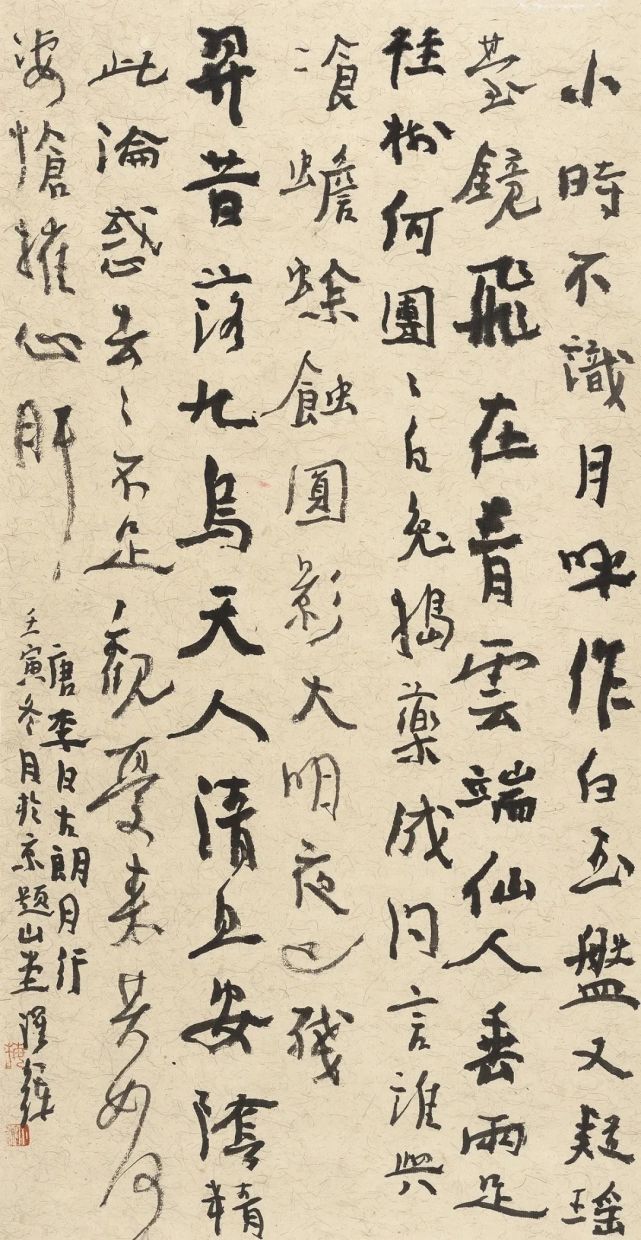 小時不識月呼作白玉盤又疑瑤
臺鏡飛在青雲端仙人垂兩足
桂樹何團〻白兔搗藥成問言誰與
飡蟾蜍蝕圓影大明夜已殘
羿昔落九烏天人清且安陰精
此淪惑去〻不足觀憂來其如何
凄愴摧心肝
唐李白古朗月行
壬寅冬月於京題山堂